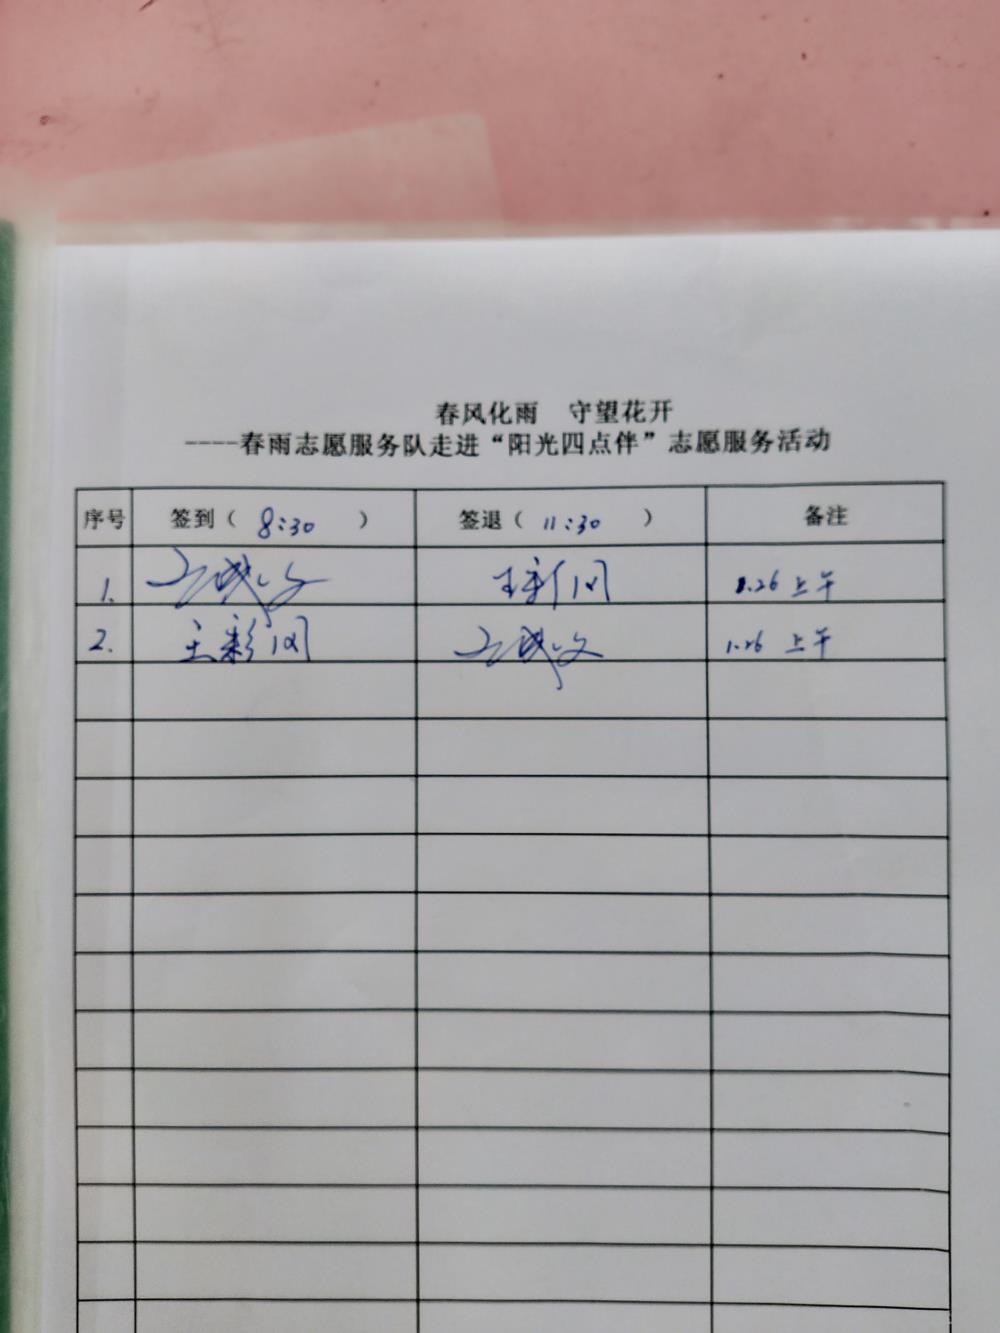 春风化雨 守望花开
----春雨志愿服务队走进“阳光四点伴”志愿服务活动
序号 签到（ 8:30 ） 签退（ 11:30 ） 备注
1. 1.26 上午
2. 1.26 上午